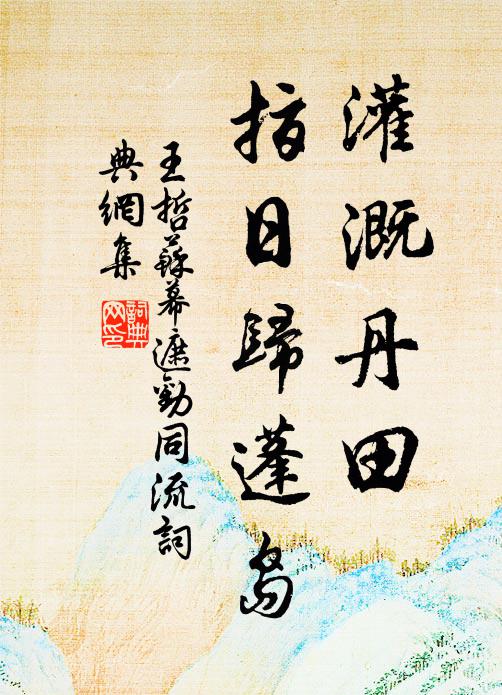 灌溉丹田
指日歸蓬島
王哲蘇幕遮勸同流詞
典網集
詞典網印